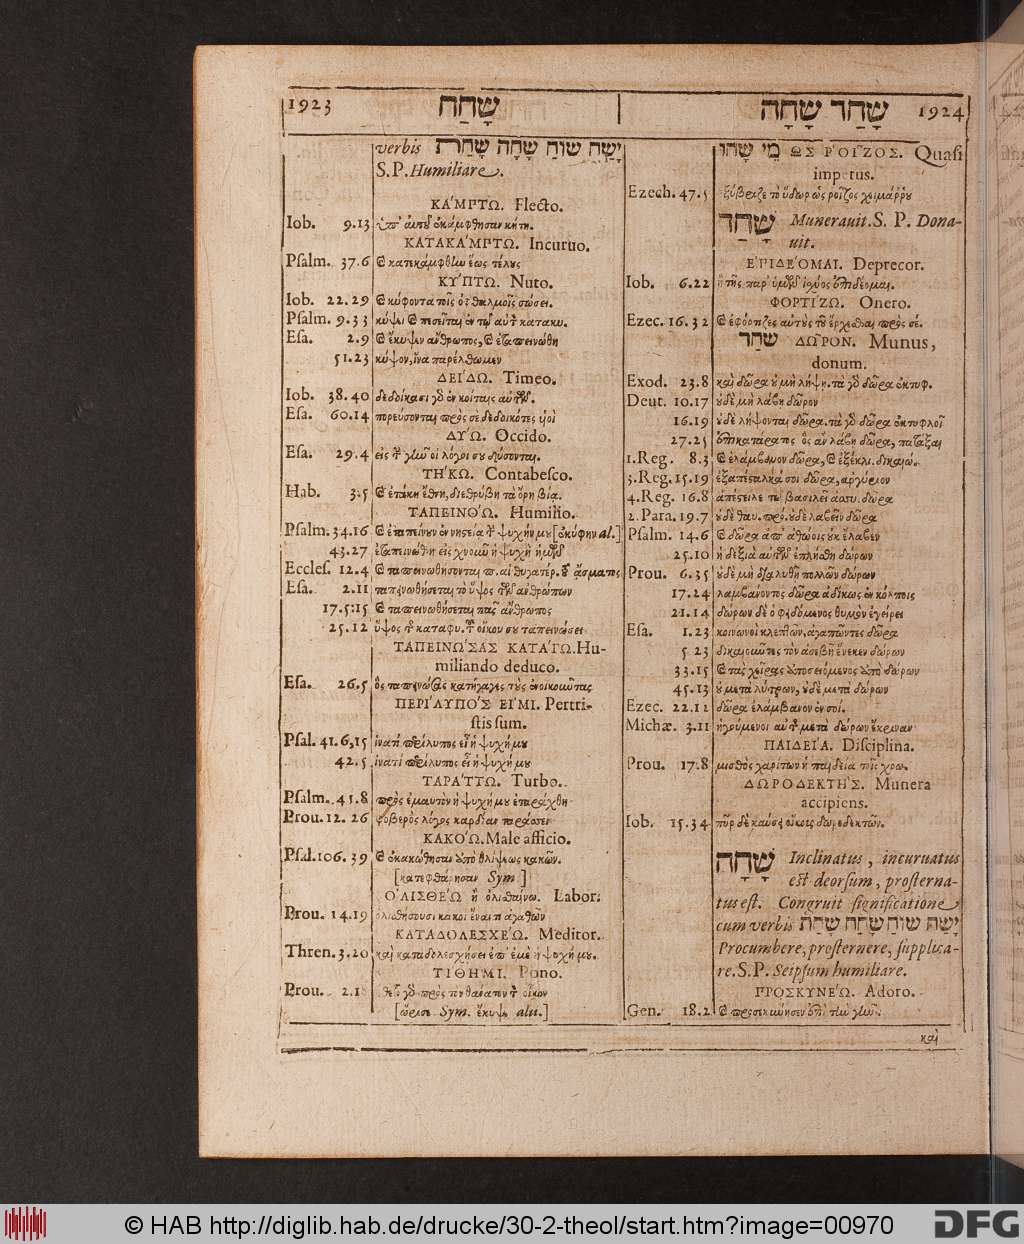 1923 שָׁחַח
verbis יָשַׁח שׁוּחַ שָׁחָה שָׁחַת
S.P. Humiliare.
ΚΑ΄ΜΡΤΩ. Flecto.
Iob. 9.13 ὑπ' αὐτοῦ ἐκάμφθησαν κήτη.
ΚΑΤΑΚΑ΄ΜΡΤΩ. Incuruo.
Psalm. 37.6 ϗ κατεκάμφθην ἕως τέλους
ΚΥ΄ΠΤΩ. Nuto.
Iob. 22.29 ϗ κύφοντα τοῖς ὀφθαλμοῖς σώσει.
Psalm. 9.33 κύψει ϗ πεσεῖται ἐν τῷ αὐτὸν κατακυ.
Esa. 2.9 ϗ ἔκυψεν ἄνθρωπος, ϗ ἐταπεινώθη
51.23 κύψον, ἵνα παρέλθωμεν
ΔΕΙ΄ΔΩ. Timeo.
Iob. 38.40 δεδοίκασι γὸ ἐν κοίταις αὐτῶν.
Esa. 60.14 πορεύσονται πρὸς σὲ δεδοικότες υἱοὶ
ΔΥ΄Ω. Occido.
Esa. 29.4 εἰς τὴν γῆν οἱ λόγοι σου δύσονται.
ΤΗ΄ΚΩ. Contabesco.
Hab. 3.5 ϗ ἐτάκη ἔθνη, διεθρύβη τὰ ὄρη βία.
ΤΑΠΕΙΝΟ΄Ω. Humilio.
Psalm. 34.16 ϗ ἐταπείνουν ἐν νηστεία τὴν ψυχήν μου [ἐκύφην al.]
43.27 ἐταπεινώθη εἰς χνοῦν ἡ ψυχὴ ἡμῶν
Eccles. 12.4 ϗ ταπεινωθήσονται π. αἱ θυγατέρ. τοῦ ᾄσματος
Esa. 2.11 ταπεινωθήσεται τὸ ὕψος τῶν ἀνθρώπων
17.5:15 ϗ ταπεινωθήσεται πᾶς ἄνθρωπος
25.12 ὕψος τῆς καταφυ. τοῦ τοίχου σου ταπεινώσει
ΤΑΠΕΙΝΩ΄ΣΑΣ ΚΑΤΑ΄ΓΩ. Hu-
miliando deduco.
Esa. 26.5 ὃς ταπεινώσας κατήγαγες τοὺς ἐνοικοῦντας
ΠΕΡΙ΄ΛΥΠΟ΄Σ ΕΙ΄ΜΙ. Pertri-
stis sum.
Psal. 41.6,15 ἱνατί περίλυπος εἶ ἡ ψυχή μου
42.5 ἱνατί περίλυπος εἶ ἡ ψυχή μου
ΤΑΡΑ΄ΤΤΩ. Turbo.
Psalm. 41.8 πρὸς ἐμαυτὸν ἡ ψυχή μου ἐταράχθη
Prou. 12.26 φοβερὸς λόγος καρδίαν ταράσσει
ΚΑΚΟ΄Ω. Male afficio.
Psal. 106.39 ϗ ἐκακώθησαν ἀπὸ θλίψεως κακῶν.
[κατεφθάρησαν Sym.]
Ο΄ΛΙΣΘΕ΄Ω ἢ ὀλισθαίνω. Labor.
Prou. 14.19 ὀλισθήσουσι κακοὶ ἔναντι ἀγαθῶν
ΚΑΤΑΔΟΛΕΣΧΕ΄Ω. Meditor.
Thren. 3.20 καὶ καταδολεσχήσει ἐπ' ἐμὲ ἡ ψυχή μου.
ΤΙ΄ΘΗΜΙ. Pono.
Prou. 2.18 ἔθετο γὸ πρὸς τὸν θανάτον τὸν οἶκον
[ὥρισε Sym. ἔκυψε alii.]
שָׁחַר שָׁחָה 1924
מֵי שָׁחוּ ΩΣ Ρ΄ΟΙ˜ΖΟΣ. Quasi
impetus.
Ezech. 47.5 ἐξύβριζε τὸ ὕδωρ ὡς ροῖζος χειμάῤῥου
שָׁחַד Munerauit. S. P. Dona-
uit.
ΕΠΙΔΕ΄ΟΜΑΙ. Deprecor.
Iob. 6.22 ἢ τῆς παρ' ὑμῶν ἰσχύος ἐπιδέομαι.
ΦΟΡΤΙ΄ΖΩ. Onero.
Ezec. 16.32 ϗ ἐφόρτιζες αὐτοὺς τοῦ ἔρχεσθαι πρὸς σέ.
שֹׁחַד ΔΩ˜ΡΟΝ. Munus,
donum.
Exod. 23.8 καὶ δῶρα οὐ μὴ λήψῃ. τὰ γὸ δῶρα ἐκτυφ.
Deut. 10.17 οὐδὲ μὴ λάβῃ δῶρον
16.19 οὐδὲ λήψονται δῶρα. τὰ γὸ δῶρα ἐκτυφλοῖ
27.25 ἐπικατάρατος ὃς ἂν λάβῃ δῶρα, πατάξαι
1.Reg. 8.3 ϗ ἐλάμβανον δῶρα, ϗ ἐξέκλι. δικαιώ.
3.Reg. 15.19 ἐξαπέσταλκά σοι δῶρα, ἀργύριον
4.Reg. 16.8 ἀπέστειλε τῷ βασιλεῖ ἀσσυ. δῶρα
2.Para. 19.7 οὐδὲ θαυ. πρό. οὐδὲ λαβεῖν δῶρα
Psalm. 14.6 ϗ δῶρα ἐπ' ἀθώοις οὐκ ἔλαβεν
25.10 ἡ δεξιὰ αὐτῶν ἐπλήσθη δώρων
Prou. 6.35 οὐδὲ μὴ διαλυθῇ πολλῶν δώρων
17.24 λαμβάνοντος δῶρα ἀδίκως ἐν κόλποις
21.14 δώρων δὲ ὁ φειδόμενος θυμὸν ἐγείρει
Esa. 1.23 κοινωνοὶ κλεπτῶν, ἀγαπῶντες δῶρα
5.23 δικαιοῦντες τὸν ἀσεβῆ ἕνεκεν δώρων
33.15 ϗ τὰς χεῖρας ἀποσειόμενος ἀπὸ δώρων
45.13 οὐ μετὰ λύτρων, οὐδὲ μετὰ δώρων
Ezec. 22.12 δῶρα ἐλαμβάνον ἐν σοί.
Michæ. 3.11 ἡγούμενοι αὐτῆς μετὰ δώρων ἔκριναν
ΠΑΙΔΕΙ΄Α. Disciplina.
Prou. 17.8 μισθὸς χαρίτων ἡ παιδεία τοῖς χρω.
ΔΩΡΟΔΕΚΤΗ΄Σ. Munera
accipiens.
Iob. 15.34 πῦρ δὲ καύσει οἴκους δωροδεκτῶν.
שָׁחָה Inclinatus, incuruatus
est deorsum, prosterna-
tus est. Congruit significatione
cum verbis יָשַׁח שׁוּחַ שָׁחַח שָׁחַת
Procumbere, prosternere, supplica-
re. S.P. Seipsum humiliare.
ΠΡΟΣΚΥΝΕ΄Ω. Adoro.
Gen. 18.2 ϗ προσεκύνησεν ἐπὶ τὴν γῆν.
καὶ
© HAB http://diglib.hab.de/drucke/30-2-theol/start.htm?image=00970
DFG